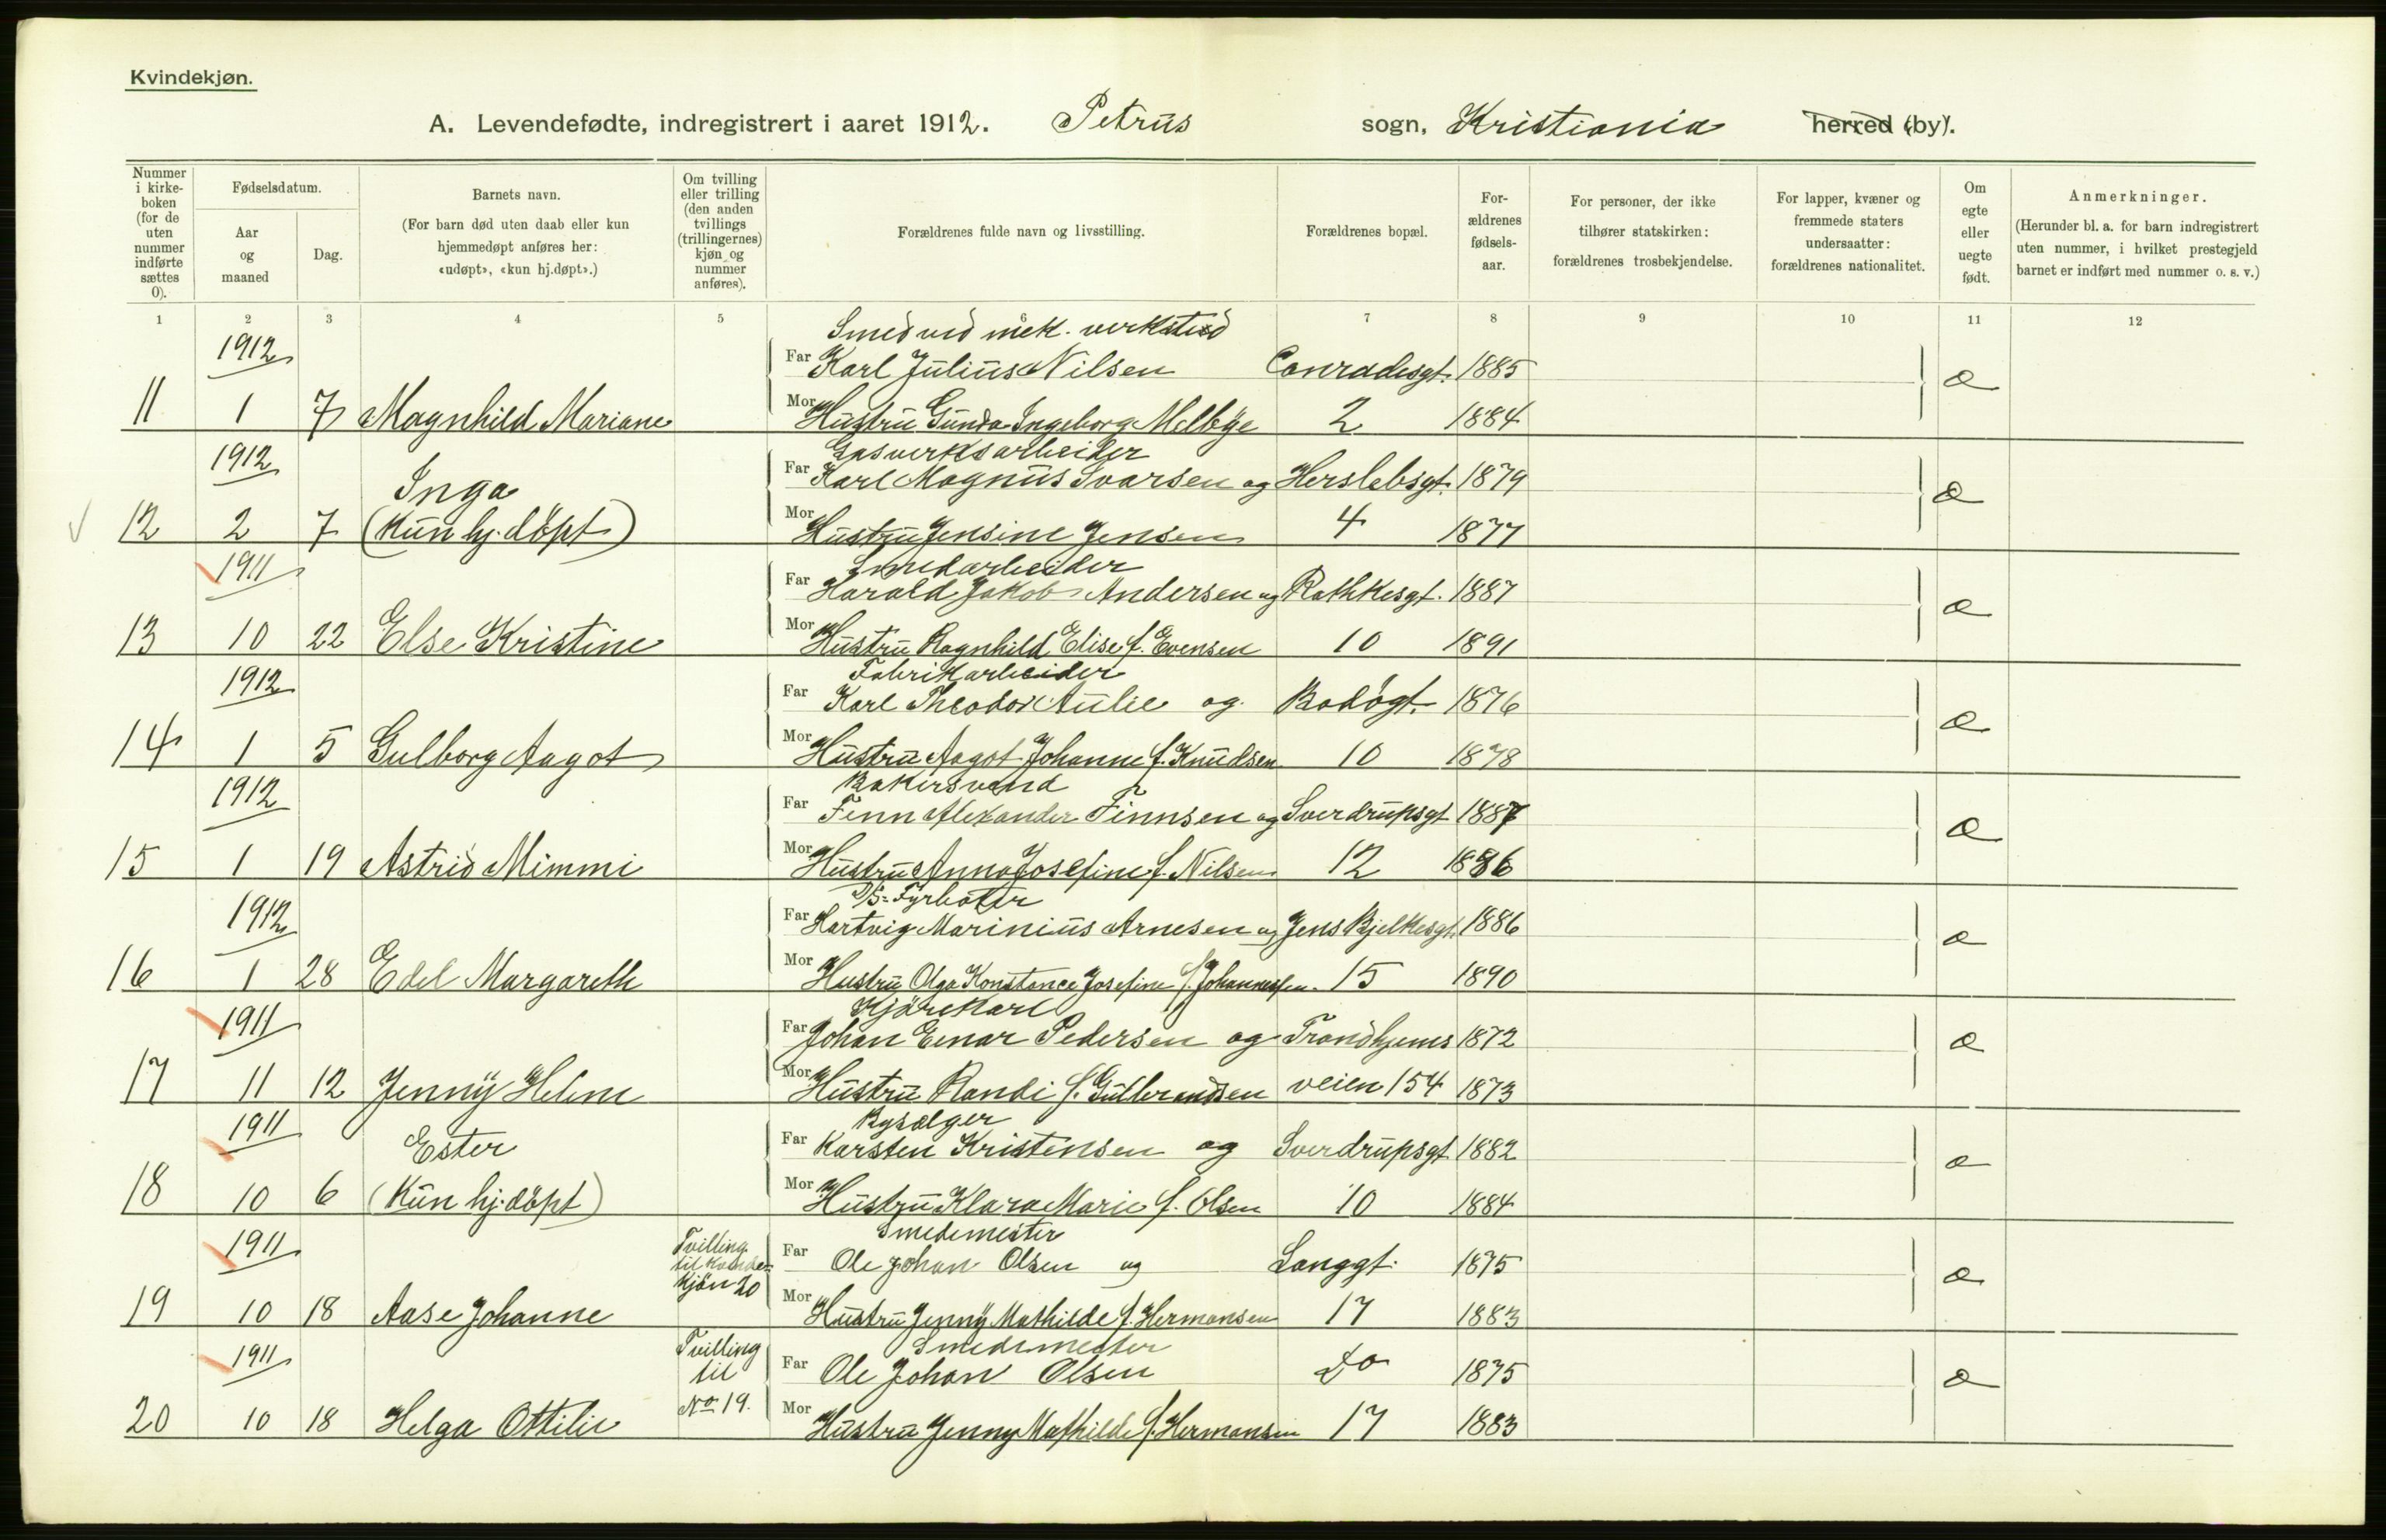 Kvindekjøn.
A. Levendefødte, indregistrert i aaret 1912. Petrus sogn, Kristiania herred (by).
Nummer i kirke-boken (for de uten nummer indførte sættes 0).
Fødselsdatum.
Aar og maaned
Dag.
Barnets navn.
(For barn død uten daab eller kun hjemmedøpt anføres her: «udøpt», «kun hj.døpt».)
Om tvilling eller trilling (den anden tvillings (trillingernes) kjøn og nummer anføres).
Forældrenes fulde navn og livsstilling.
Forældrenes bopæl.
For-ældrenes fødsels-aar.
For personer, der ikke tilhører statskirken: forældrenes trosbekjendelse.
For lapper, kvæner og fremmede staters undersaatter: forældrenes nationalitet.
Om egte eller uegte født.
Anmerkninger.
(Herunder bl. a. for barn indregistrert uten nummer, i hvilket prestegjeld barnet er indført med nummer o. s. v.)
1 2 3 4 5 6 7 8 9 10 11 12
1912 Smed ved mek. verksted
Far Karl Julius Nilsen Conradesgt. 1885 æ
11 1 7 Magnhild Mariane Mor Hustru Gunda Ingeborg Melbye 2 1884
1912 Gasverksarbeider
Inga Far Karl Magnus Ivarsen og Herslebsgt. 1879 æ
12 2 7 (Kun hj. döpt) Mor Hustru Jensine Jensen 4 1877
1911 Smedarbeider
Far Harald Jakob Andersen og Rathkesgt. 1887 æ
13 10 22 Else Kristine Mor Hustru Ragnhild Elise f. Evensen 10 1891
1912 Fabrikarbeider
Far Karl Theodor Aulie og Bodögt. 1876 æ
14 1 5 Gulborg Aagot Mor Hustru Aagot Johanne f. Knudsen 10 1878
1912 Bakersvend
Far Finn Alexander Finnsen og Sverdrupsgt 1887 æ
15 1 19 Astrid Mimmi Mor Hustru Anna Josefine f. Nilsen 12 1886
1912 D/S-Fyrböter
Far Hartvig Marinius Arnesen og Jens Bjelkesgt. 1886 æ
16 1 28 Edel Margareth Mor Hustru Olga Konstance Josefine f. Johannessen. 15 1890
1911 Kjörekarl
Far Johan Einar Pedersen og Trondhjems 1872 æ
17 11 12 Jenny Helene Mor Hustru Randi f. Gulbrandsen veien 154 1873
1911 Bysælger
Ester Far Karsten Kristensen og Sverdrupsgt 1882 æ
18 10 6 (Kun hj. döpt) Mor Hustru Klara Marie f. Olsen 10 1884
1911 Tvilling til Kvinde-kjön 20 Smedemester
Far Ole Johan Olsen og Langgt. 1875 æ
19 10 18 Aase Johanne Mor Hustru Jenny Mathilde f. Hermansen 17 1883
1911 Tvilling til No 19. Smedemester
Far Ole Johan Olsen Do 1875 æ
20 10 18 Helga Ottilie Mor Hustru Jenny Mathilde f. Hermansen 17 1883